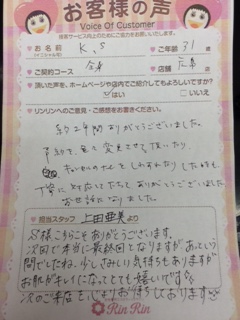 お客様の声
Voice Of Customer
接客サービス向上のためにご協力をお願いいたします。
お名前
(イニシャル可)
K.S
ご年齢 31 歳
ご契約コース
全身
店舗
頂いた声を、ホームページや店内でご紹介してもよろしいですか?
はい
いいえ
リンリンへのご意見・ご感想をお書きください。
約2年間ありがとうございました。
予約を色々変更させて頂いたり、
丁寧に対応して下さりありがとうございました。
お世話になりました。
担当スタッフ 上田亜美 より
S様こちらこそありがとうございます。
次回で本当に最終回となりますが あっという
間でしたね。少しさみしい気持ちもありますが
お肌がキレイになってとても嬉しいです
次のご来店を心よりお待ちしております
Rin Rin